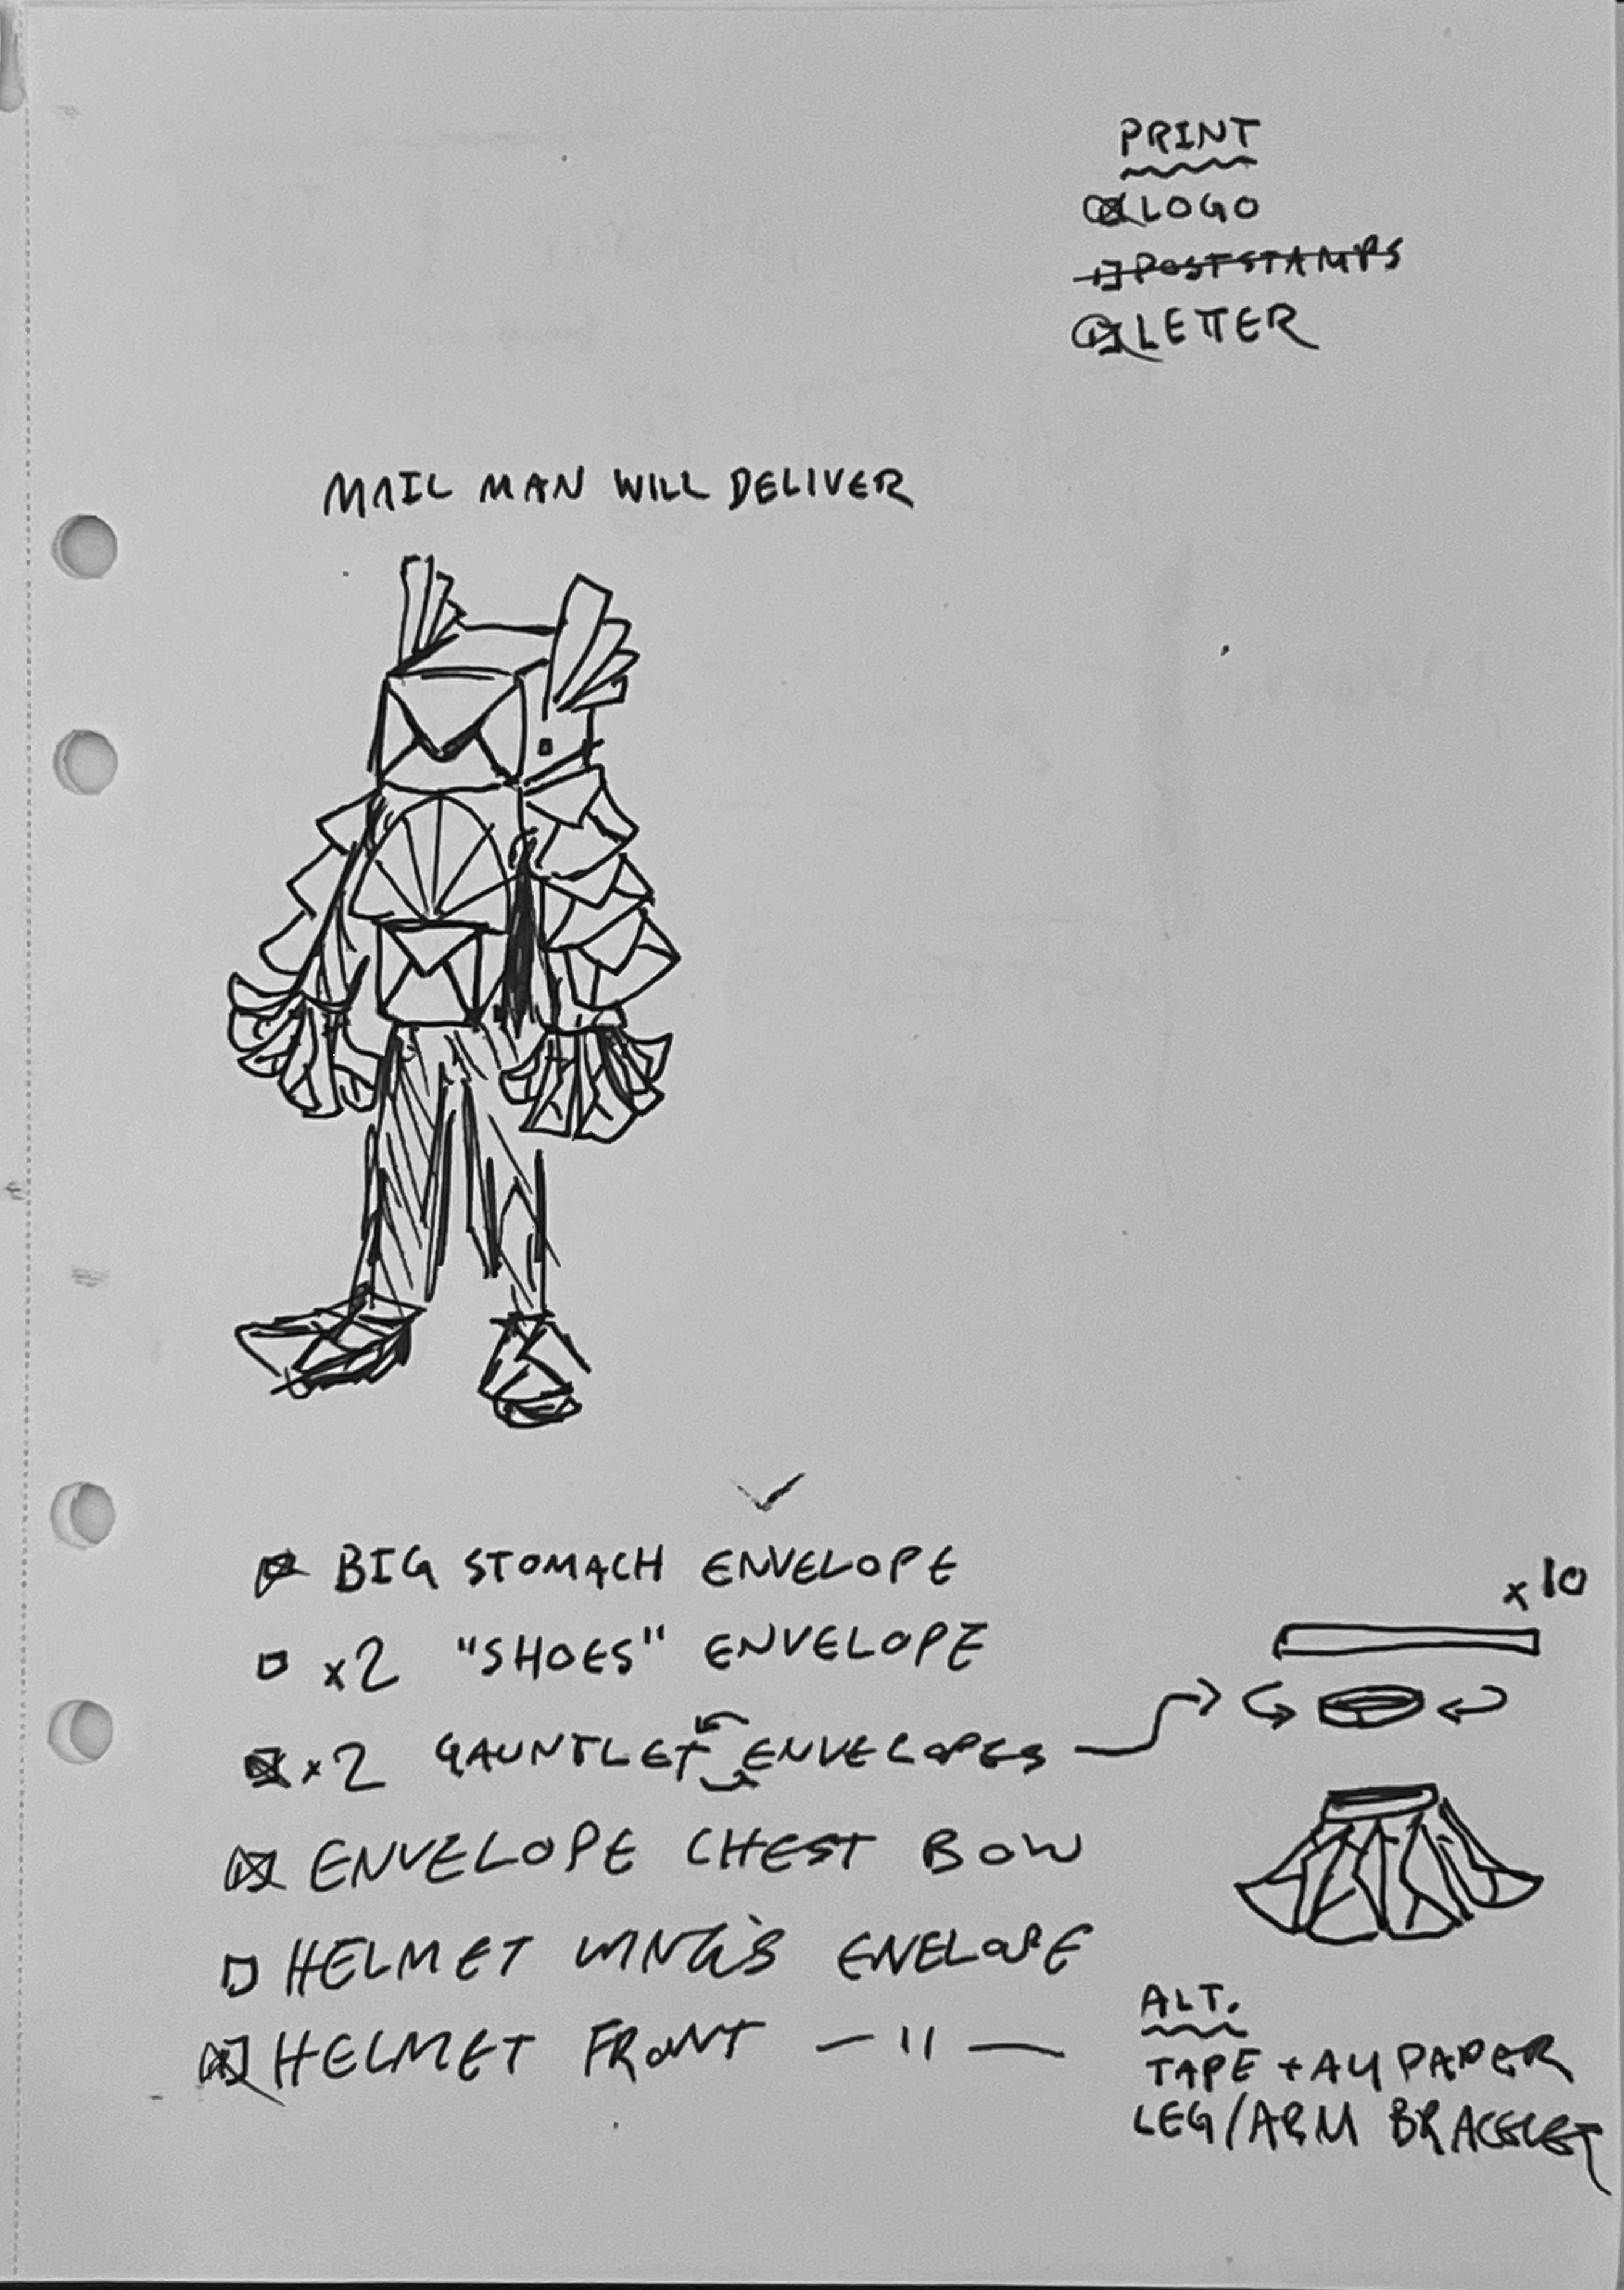 PRINT
LOGO
POSTSTAMPS
LETTER
MAIL MAN WILL DELIVER
BIG STOMACH ENVELOPE
x2 "SHOES" ENVELOPE
x2 GAUNTLET ENVELOPES
ENVELOPE CHEST BOW
HELMET WINGS ENELOPE
HELMET FRONT — 11 —
x10
ALT.
TAPE + A4 PAPER
LEG/ARM BRACELET